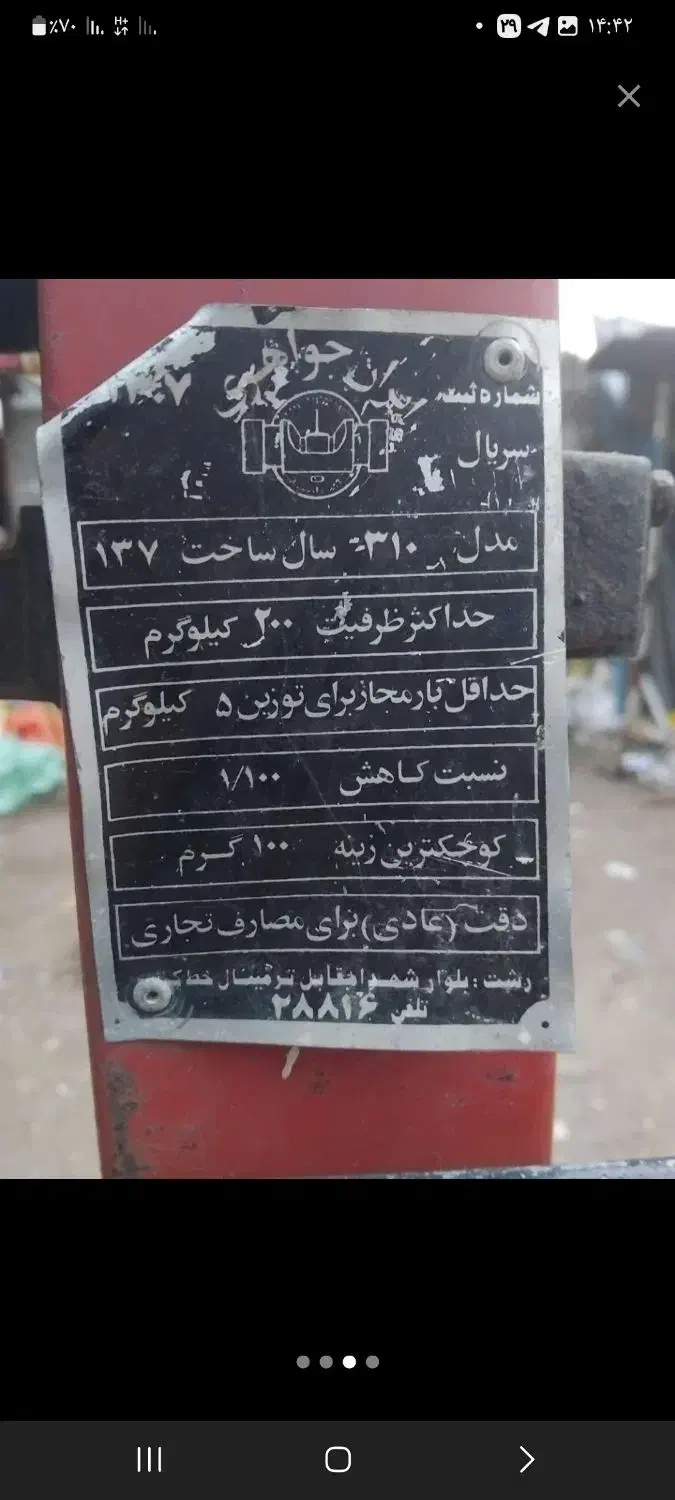 ٪۷۰ H+ ۲۹ ۱۴:۴۲
جواهری
شماره ثبت
سریال
مدل ۳۱۰ سال ساخت ۱۳۷
حداکثر ظرفیت ۲۰۰ کیلوگرم
حداقل بار مجاز برای توزین ۵ کیلوگرم
نسبت کاهش ۱/۱۰۰
کوچکترین زینه ۱۰۰ گرم
دقت (عادی) برای مصارف تجاری
رشت : بلوار شهدا مقابل ترمینال خطک
تلفن ۲۸۸۱۶